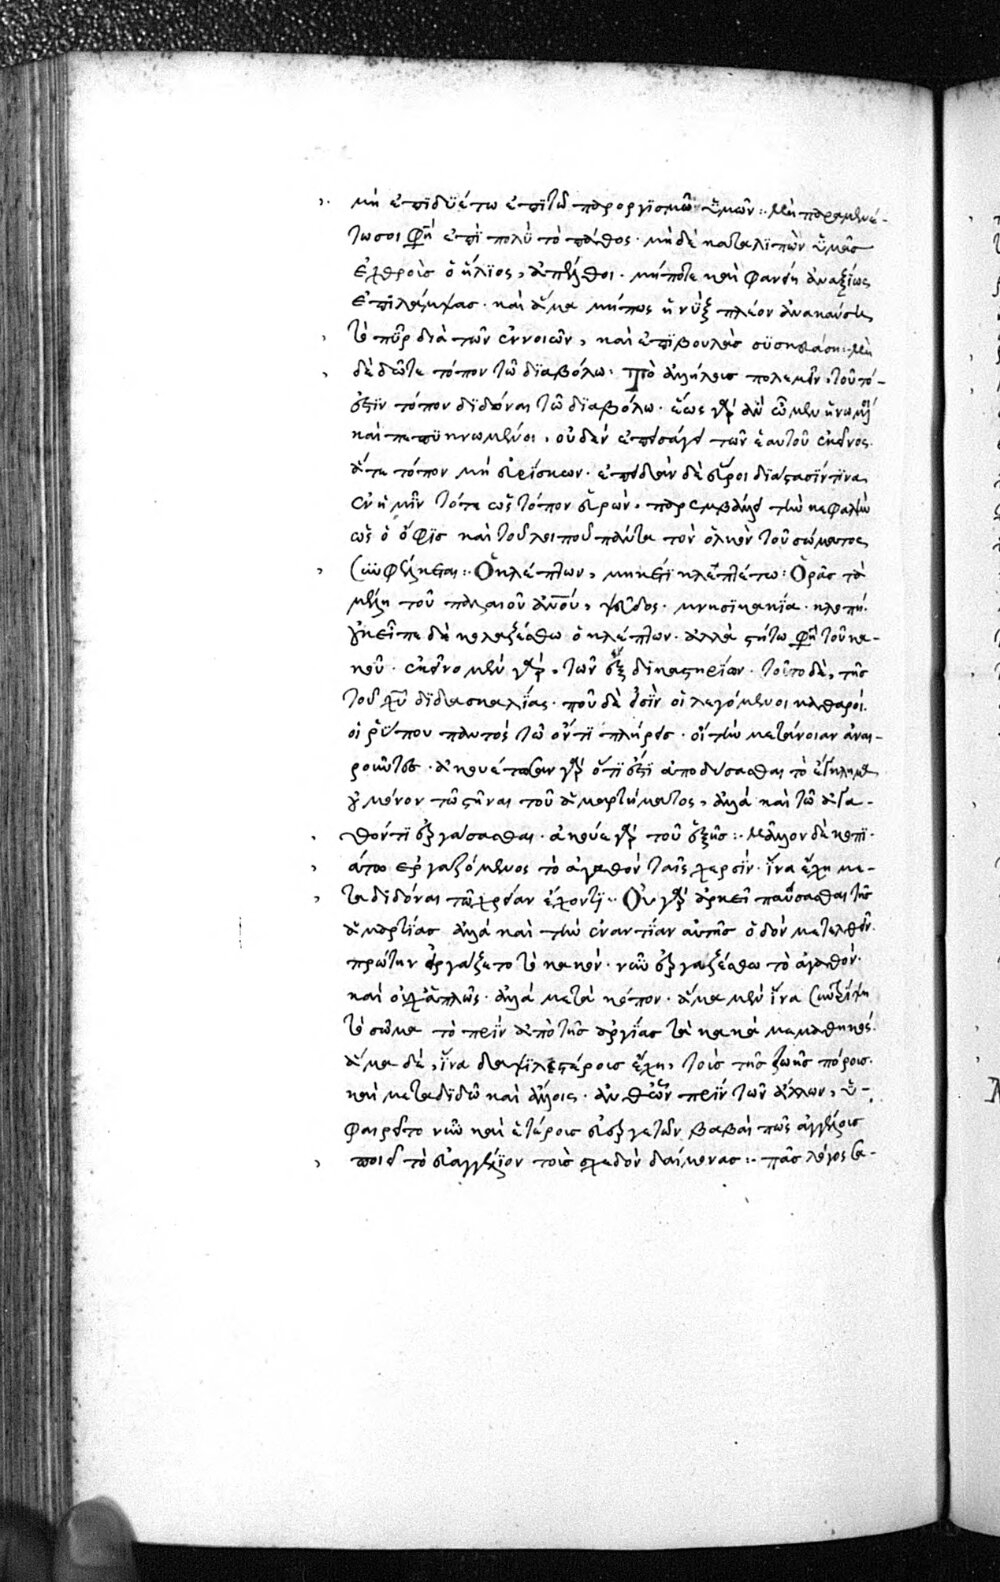 μὴ ἐπιδυέτω ἐπὶ τῶ παροργισμῶ ὑμῶν: Μὴ παραμενέ-
τω σοι φησὶ ἐπὶ πολὺ τὸ πάθος· μὴ δὲ καταλιπὼν ὑμᾶς
ἐχθροὺς ὁ ἥλιος, ἀπέλθοι· μήποτε καὶ φανῆ ἀναξίως
ἐπιλάμψας· καὶ ἅμα μήπως ἡ νὺξ πλέον ἀνακαύσῃ
τὸ πῦρ διὰ τῶν ἐννοιῶν, καὶ ἐπιβουλὰς συσκευάσῃ: Μὴ
δὲ δῶτε τόπον τῶ διαβόλω· Τὸ ἀλλήλοις πολεμεῖν, τοῦτό
ἐστιν τόπον διδόναι τῶ διαβόλω· ἕως γὰρ ἂν ὦμεν ἡνωμένοι
καὶ πεπυκνωμένοι, οὐδὲν ἐπεισάγει τῶν ἑαυτοῦ ἐκεῖνος·
ἅτε τόπον μὴ εὑρίσκων· ἐπειδὰν δὲ εὕροι διάστασίν τινα
ἐν ἡμῖν τότε ὡς τόπον εὑρὼν, παρεμβάλλει τὴν κεφαλὴν
ὡς ὁ ὄφις καὶ τοῦ λοιποῦ πάντα τὸν ὁλκὸν τοῦ σώματος
συνεφέλκεται: Ὁ κλέπτων, μηκέτι κλεπτέτω: Ὁρᾶς τὰ
μέλη τοῦ παλαιοῦ ἀνου, ψεῦδος· μνησικακία· κλοπή·
οὐκ εἶπε δὲ κολαζέσθω ὁ κλέπτων· ἀλλὰ στήτω φησὶ τοῦ κα-
κοῦ· ἐκεῖνο μὲν γὰρ, τῶν ἔξω δικαστηρίων· τοῦτο δὲ, τῆς
τοῦ χυ διδασκαλίας· ποῦ δὲ εἰσὶν οἱ λεγόμενοι καθαροί·
οἱ ῥύπου παντὸς τῶ ὄντι πλήρεις· οἱ τὴν μετάνοιαν ἀναι-
ροῦντες· ἀκουέτωσαν γὰρ ὅτι ἔστι ἀποδύσασθαι τὸ ἔγκλημα
οὐ μόνον τῶ στῆναι τοῦ ἁμαρτήματος, ἀλλὰ καὶ τῶ ἀγα-
θόν τι ἐργάσασθαι· ἄκουε γὰρ τοῦ ἑξῆς: Μᾶλλον δὲ κοπι-
άτω ἐργαζόμενος τὸ ἀγαθὸν ταῖς χερσίν· ἵνα ἔχη με-
ταδιδόναι τῶ χρείαν ἔχοντι: Οὐ γὰρ ἀρκεῖ παύσασθαι τῆς
ἁμαρτίας ἀλλὰ καὶ τὴν ἐναντίαν αὐτῆς ὁδὸν μετελθεῖν·
πρώτην εἰργάζετο τὸ κακόν· νῦν ἐργαζέσθω τὸ ἀγαθόν·
καὶ οὐχ ἁπλῶς· ἀλλὰ μετὰ κόπου· ἅμα μὲν ἵνα συντρίψη
τὸ σῶμα τὸ πρὶν ἀπὸ τῆς ἀργίας τὰ κακὰ μεμαθηκός·
ἅμα δὲ, ἵνα δαψιλεστέροις ἔχη, τοῖς τῆς ζωῆς πόροις·
καὶ μεταδιδῶ καὶ ἄλλοις· ἀνθ' ὧν πρὶν τῶν ἄλλων, ὑ-
φαιρεῖτο νῦν καὶ ἑτέροις εὐεργετῶν βαβαὶ πῶς ἀγγέλους
ποιεῖ τὸ εὐαγγέλιον τοὺς σχεδὸν δαίμονας: πᾶς λόγος σα-